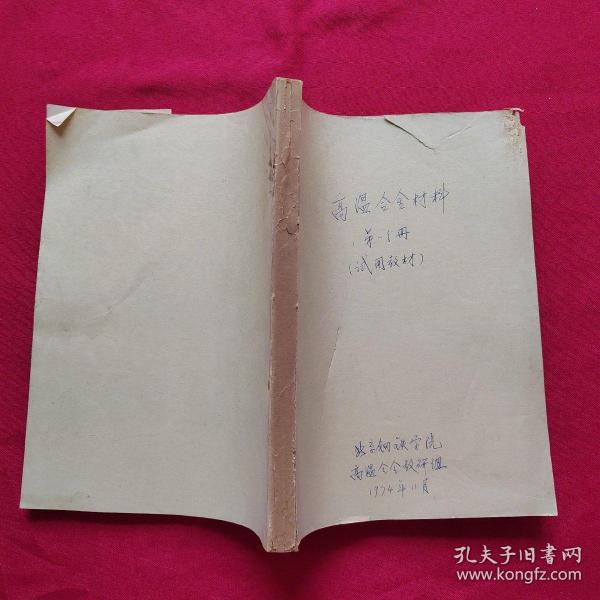 高温合金材料
第一册
(试用教材)
北京钢铁学院
高温合金教研组
1974年11月
孔夫子旧书网
www.kongfz.com